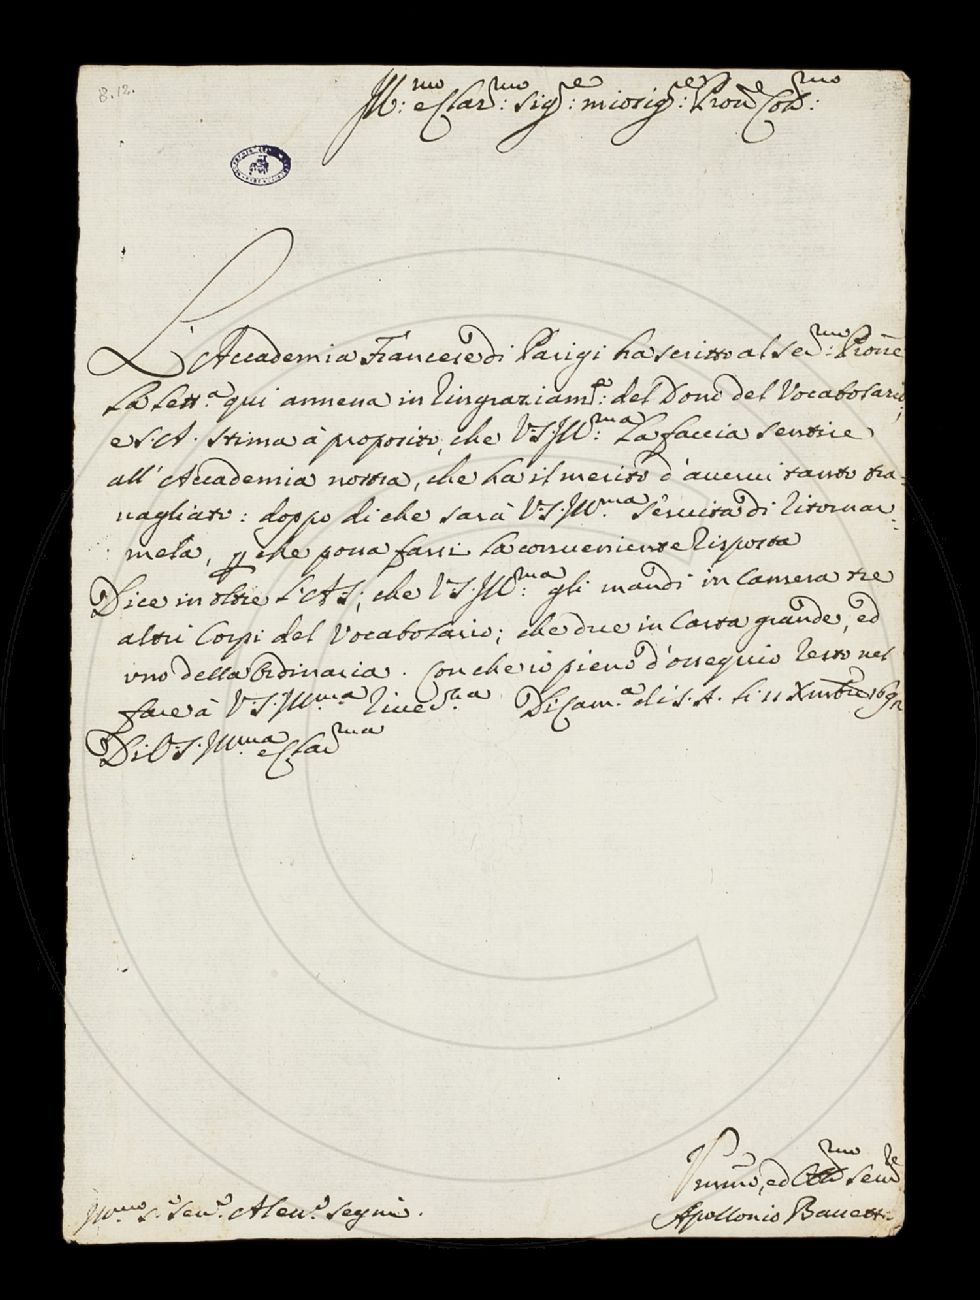 8.12.
Ill:mo e Clar:mo Sig:re mio Sig:re e Pron Col:mo
L'Accademia Francese di Parigi ha scritto al Ser:mo Prone
la lett:a qui annessa in ringraziam:o del Dono del Vocabolario,
e S. A. stima à proposito, che V. S. Ill:ma la faccia sentire
all' Accademia nostra, che ha il merito d'auerui tanto tra-
uagliato: doppo di che sarà V. S. Ill:ma seruita di ritornar-
mela, che possa farsi la conueniente risposta
Dice in oltre l'A. S., che V. S. Ill:ma gli mandi in Camera tre
altri Corpi del Vocabolario; che due in Carta grande, ed
vno della Ordinaria. Con che io pieno d'ossequio resto nel
fare à V. S. Ill:ma riuer:a Di Cam:a di S. A. li 11 Xmbre 169
Di V. S. Ill:ma e Clar:ma
Ill:mo S:r Sen:re Aless:o Segni.
ed Obb:mo Seru:re
Apollonio Bassetti